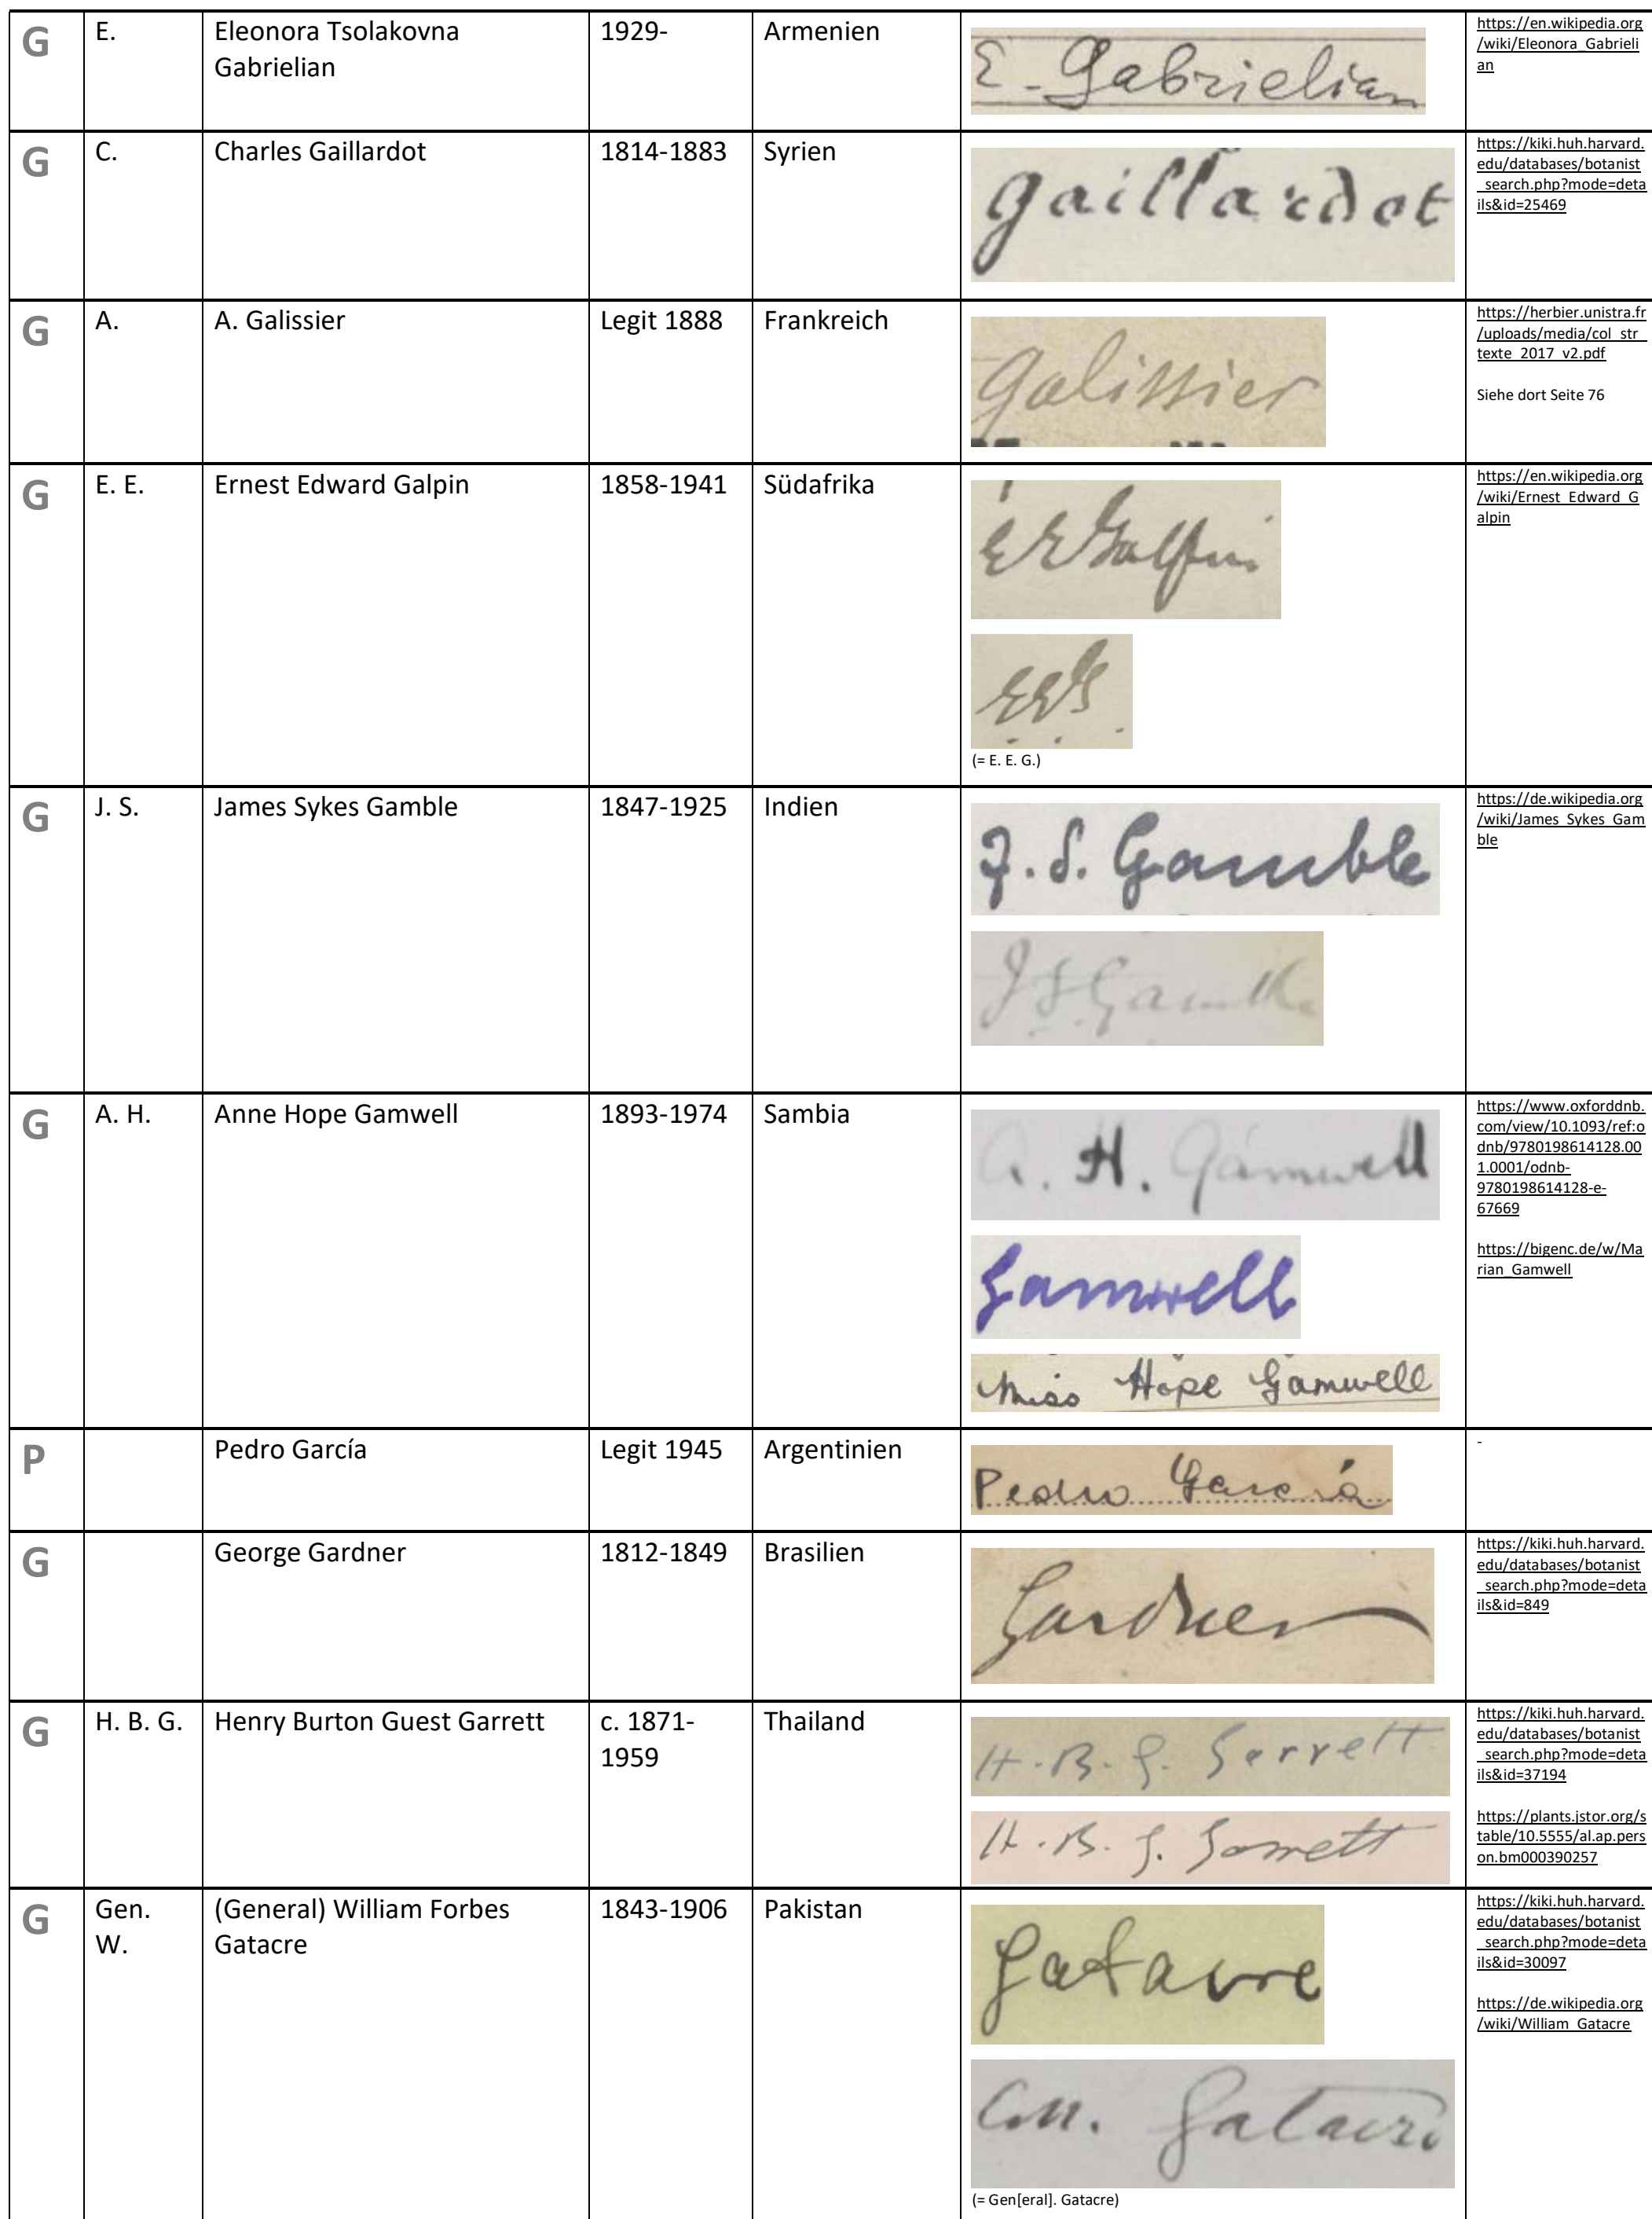 G E. Eleonora Tsolakovna 1929- Armenien E. Gabrielian https://en.wikipedia.org
Gabrielian /wiki/Eleonora_Gabrieli
an
G C. Charles Gaillardot 1814-1883 Syrien Gaillardot https://kiki.huh.harvard.
edu/databases/botanist
_search.php?mode=deta
ils&id=25469
G A. A. Galissier Legit 1888 Frankreich Galissier https://herbier.unistra.fr
/uploads/media/col_str_
texte_2017_v2.pdf
Siehe dort Seite 76
G E. E. Ernest Edward Galpin 1858-1941 Südafrika E E Galpin https://en.wikipedia.org
/wiki/Ernest_Edward_G
alpin
E E G.
(= E. E. G.)
G J. S. James Sykes Gamble 1847-1925 Indien J. S. Gamble https://de.wikipedia.org
/wiki/James_Sykes_Gam
ble
J S Gamble
G A. H. Anne Hope Gamwell 1893-1974 Sambia A. H. Gamwell https://www.oxforddnb.
com/view/10.1093/ref:o
dnb/9780198614128.00
1.0001/odnb-
9780198614128-e-
67669
Gamwell https://bigenc.de/w/Ma
rian_Gamwell
Miss Hope Gamwell
P Pedro García Legit 1945 Argentinien Pedro García -
G George Gardner 1812-1849 Brasilien Gardner https://kiki.huh.harvard.
edu/databases/botanist
_search.php?mode=deta
ils&id=849
G H. B. G. Henry Burton Guest Garrett c. 1871- Thailand H. B. G. Garrett https://kiki.huh.harvard.
1959 edu/databases/botanist
_search.php?mode=deta
ils&id=37194
H. B. G. Garrett https://plants.jstor.org/s
table/10.5555/al.ap.pers
on.bm000390257
G Gen. (General) William Forbes 1843-1906 Pakistan Gatacre https://kiki.huh.harvard.
W. Gatacre edu/databases/botanist
_search.php?mode=deta
ils&id=30097
https://de.wikipedia.org
/wiki/William_Gatacre
Gen. Gatacre
(= Gen[eral]. Gatacre)